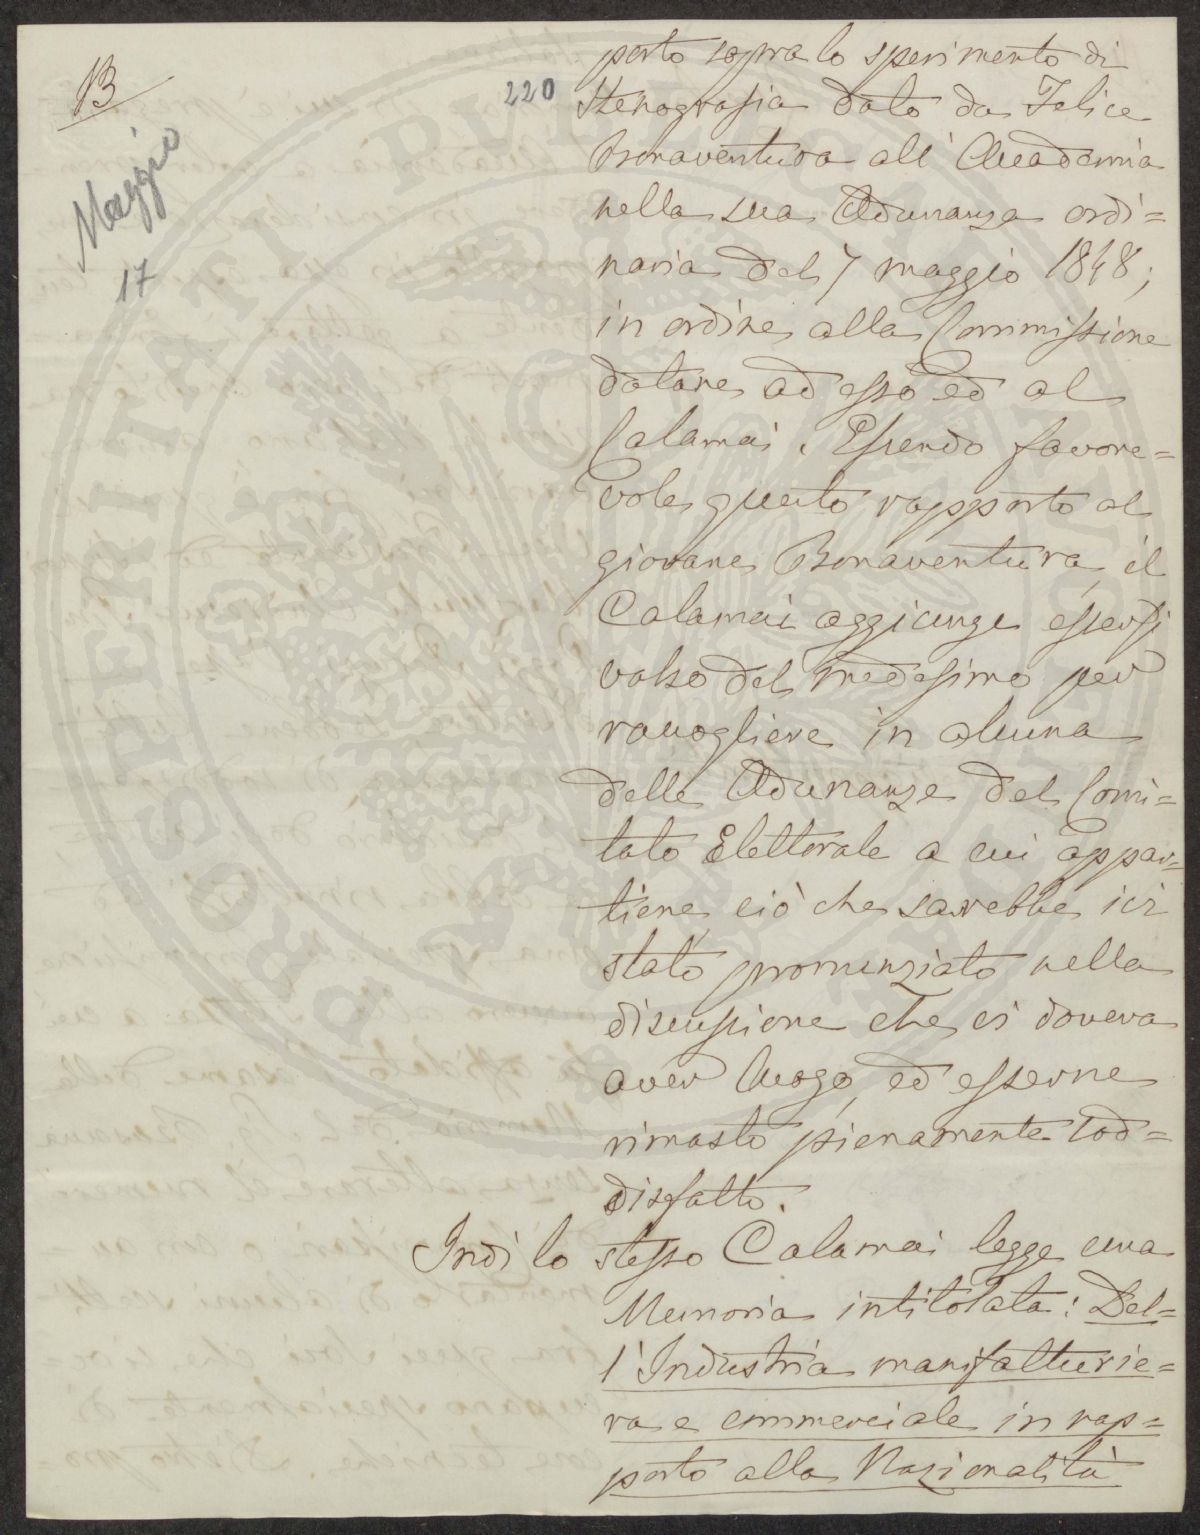 B
220
Maggio
17
porto sopra lo sperimento di
Stenografia dato da Felice
Bonaventura all' Accademia
nella sua Adunanza ordi=
naria del 7 maggio 1848;
in ordine alla Commissione
datane ad esso ed al
Calamai. Essendo favore=
vole questo rapporto al
giovane Bonaventura, il
Calamai aggiunge essersi
valso del medesimo per
raccogliere in alcuna
delle Adunanze del Comi=
tato Elettorale a cui appar=
tiene, ciò che sarebbe ivi
stato pronunziato nella
discussione che vi doveva
aver luogo, ed esserne
rimasto pienamente sod=
disfatto.
Indi lo stesso Calamai legge una
Memoria intitolata: Del=
l'Industria manifatturie=
ra e commerciale in rap=
porto alla Nazionalità
PROSPERITATI PUBLICAE